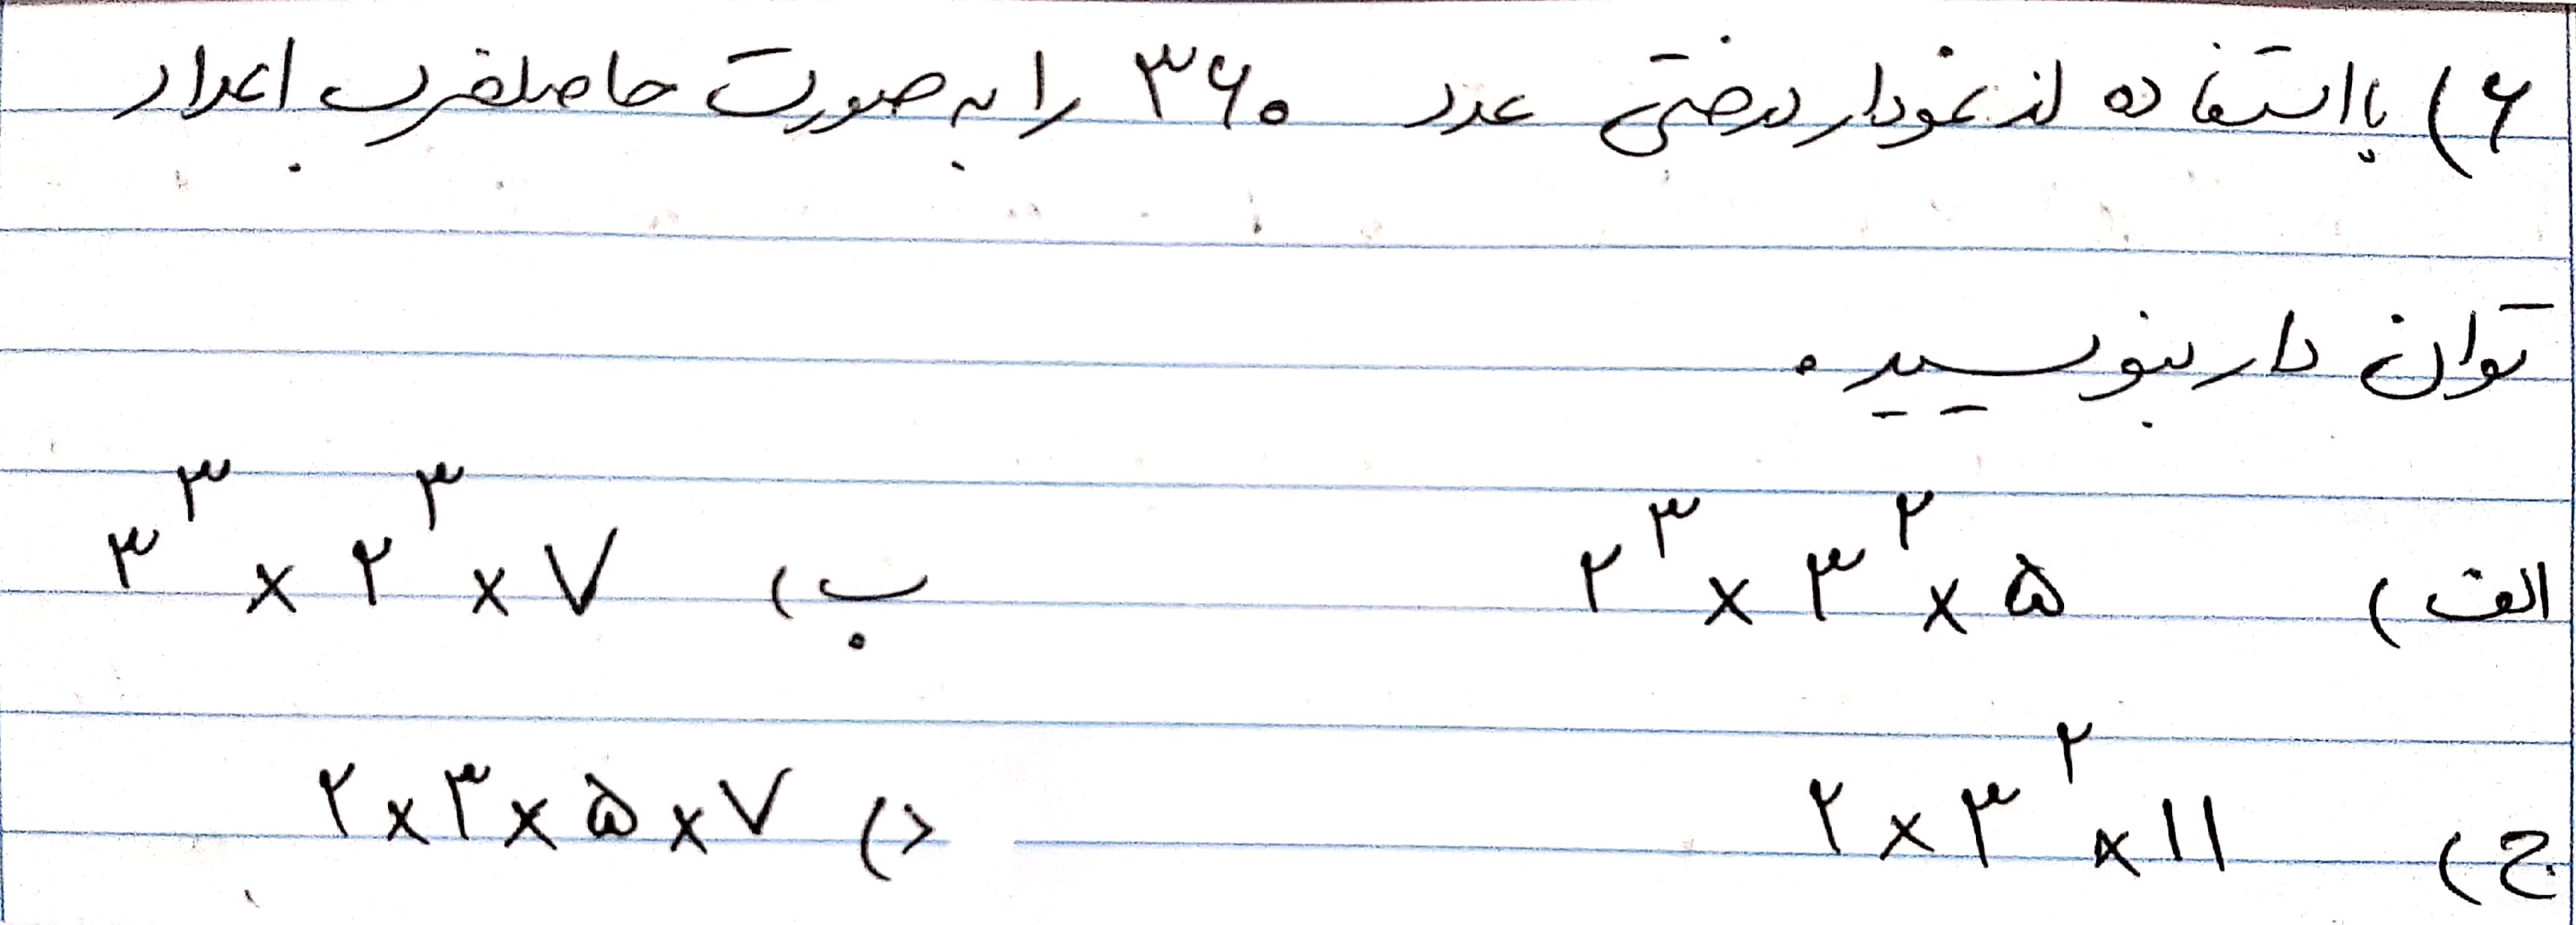 ۶) با استفاده از نمودار درختی عدد ۳۶۰ را به صورت حاصلضرب اعداد
توان دار بنویسید.
الف) ۲^۳ × ۳^۲ × ۵ ب) ۳^۳ × ۲^۳ × ۷
ج) ۲ × ۳^۲ × ۱۱ د) ۲ × ۳ × ۵ × ۷